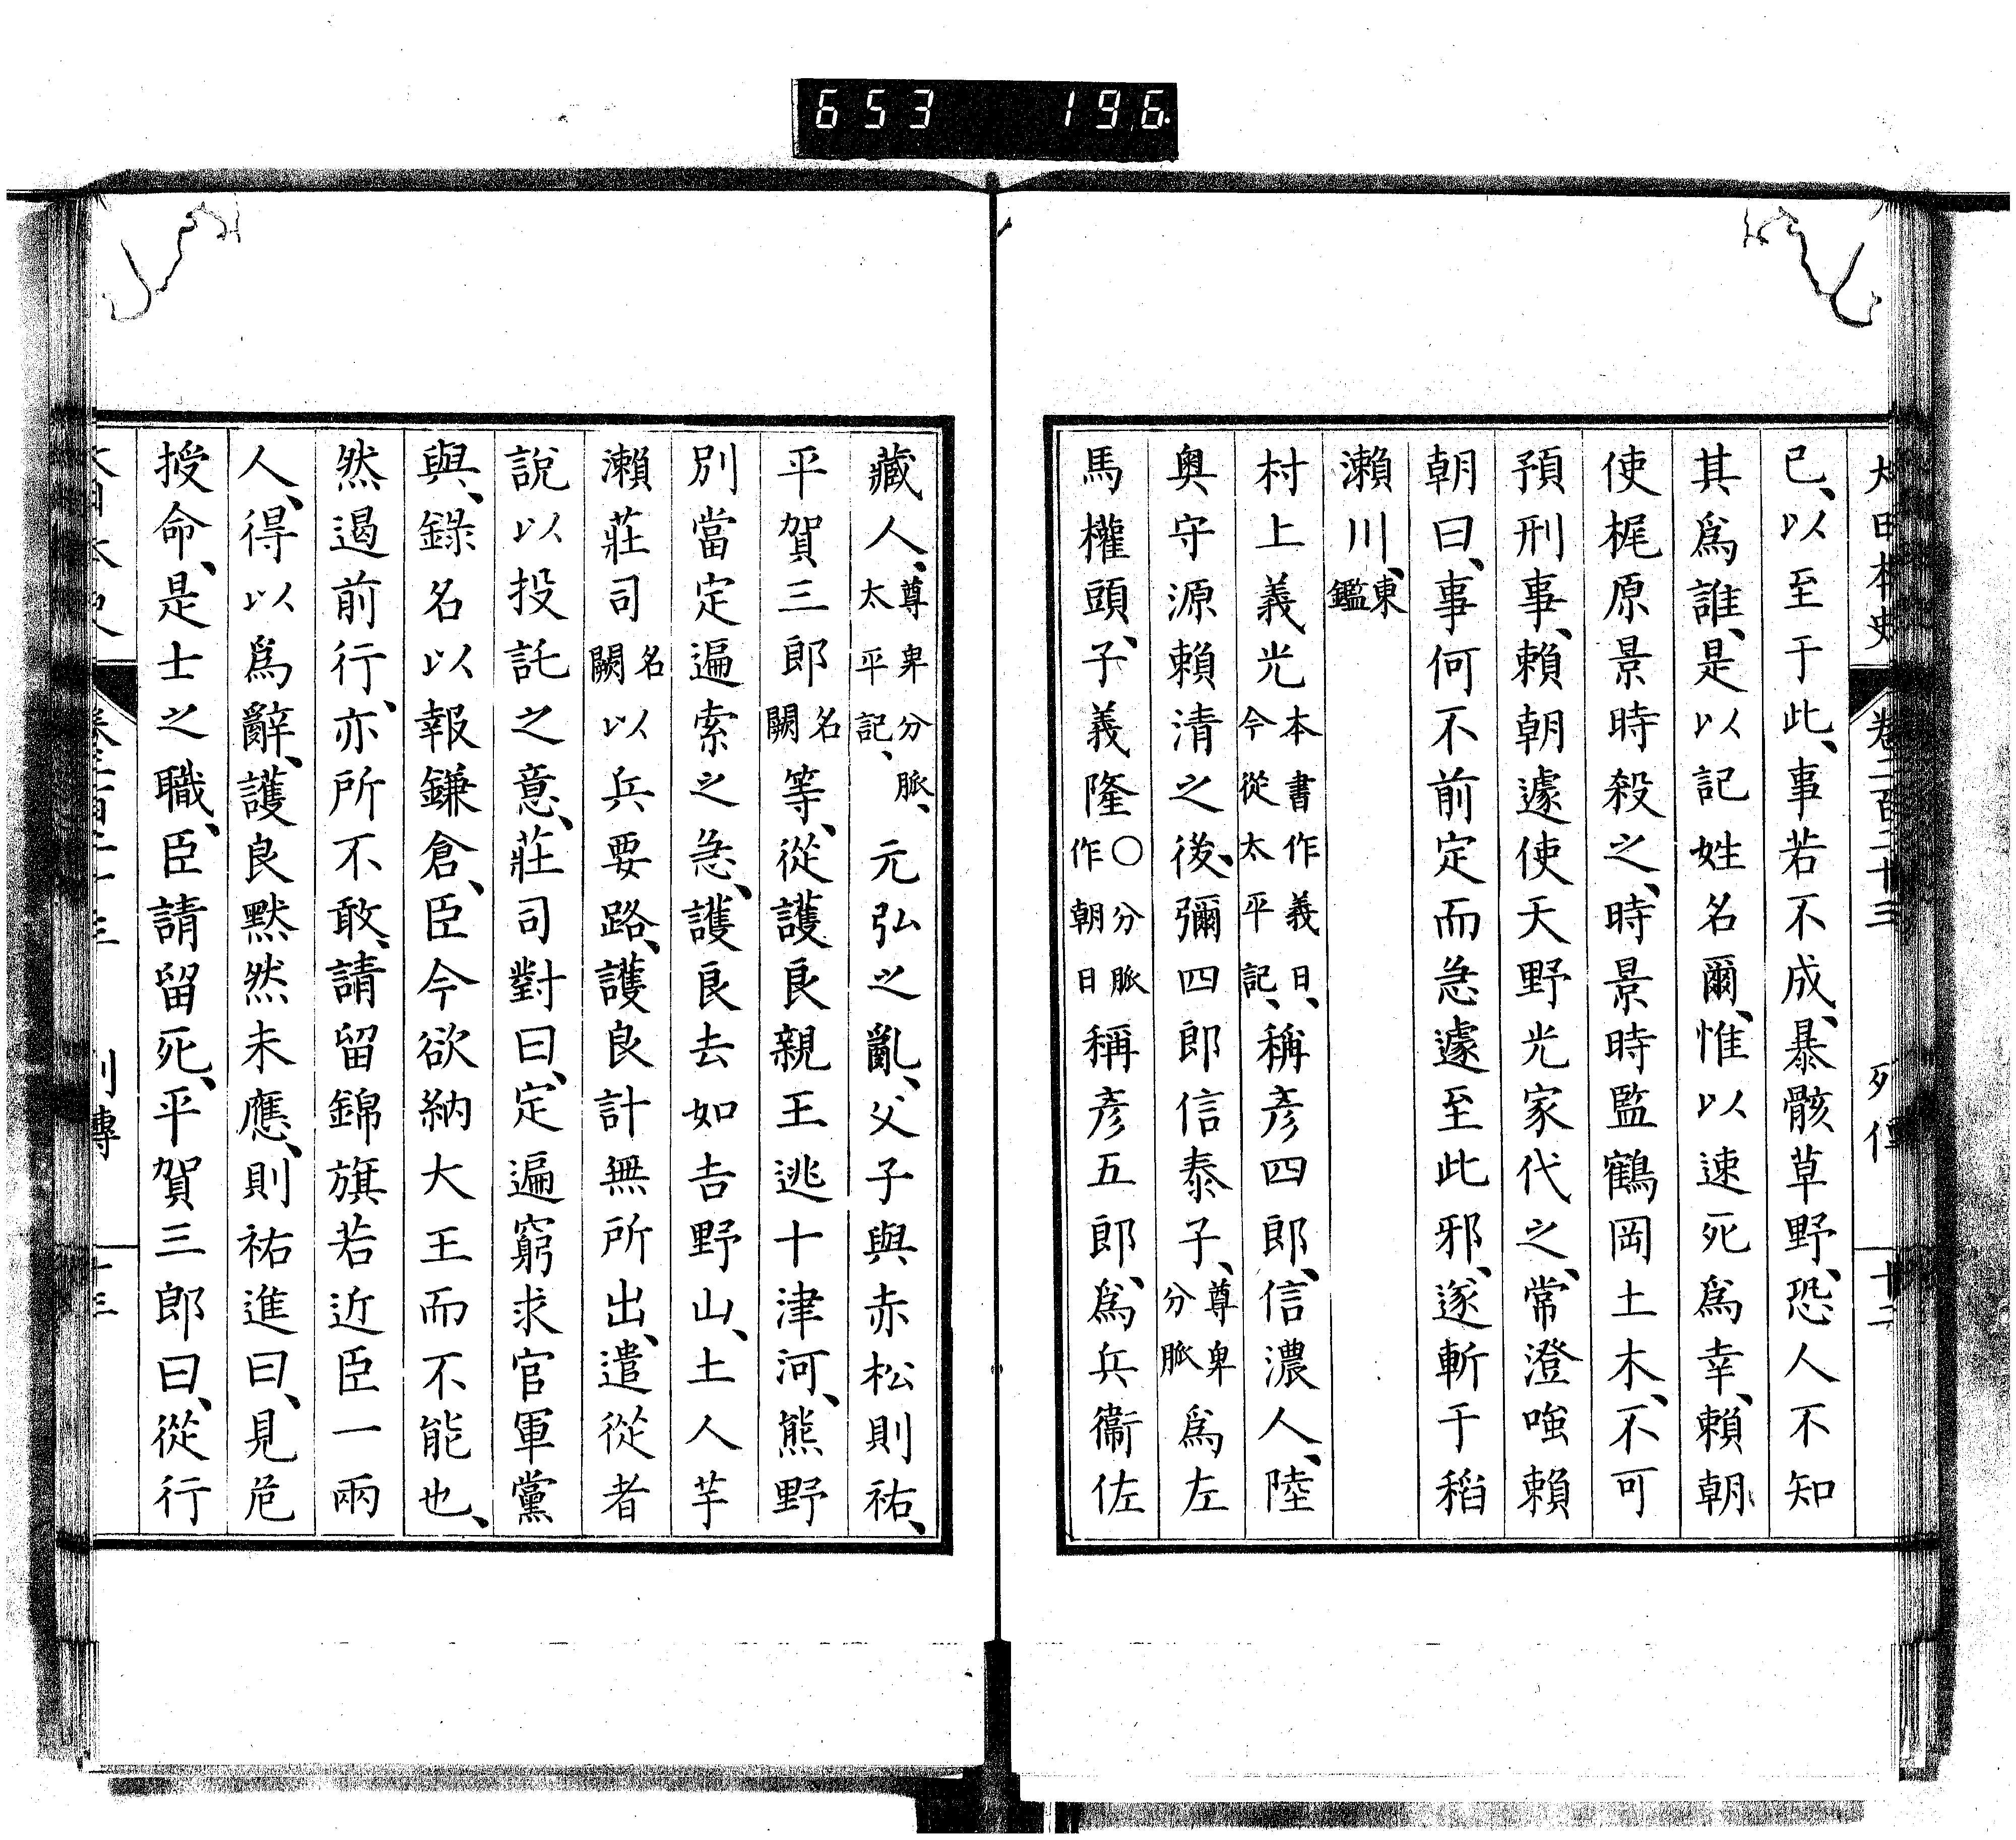 653 196
大日本史 卷二百二十三 列傳 十二
已、以至于此、事若不成、暴骸草野、恐人不知
其爲誰、是以記姓名爾、惟以速死爲幸、賴朝
使梶原景時殺之、時景時監鶴岡土木、不可
預刑事、賴朝遽使天野光家代之、常澄嗤賴
朝曰、事何不前定而急遽至此邪、遂斬于稻
瀨川、東鑑
村上義光本書作義日、今從太平記、稱彥四郎、信濃人、陸
奧守源賴清之後、彌四郎信泰子、尊卑分脈爲左
馬權頭、子義隆〇分脈作朝日稱彥五郎、爲兵衞佐
藏人、尊卑分脈、太平記、元弘之亂、父子與赤松則祐、
平賀三郎名闕等、從護良親王逃十津河、熊野
別當定遍索之急、護良去如吉野山、土人芋
瀨莊司名闕以兵要路、護良計無所出、遣從者
說以投託之意、莊司對曰、定遍窮求官軍黨
與、錄名以報鎌倉、臣今欲納大王而不能也、
然遏前行、亦所不敢、請留錦旗若近臣一兩
人、得以爲辭、護良默然未應、則祐進曰、見危
授命、是士之職、臣請留死、平賀三郎曰、從行